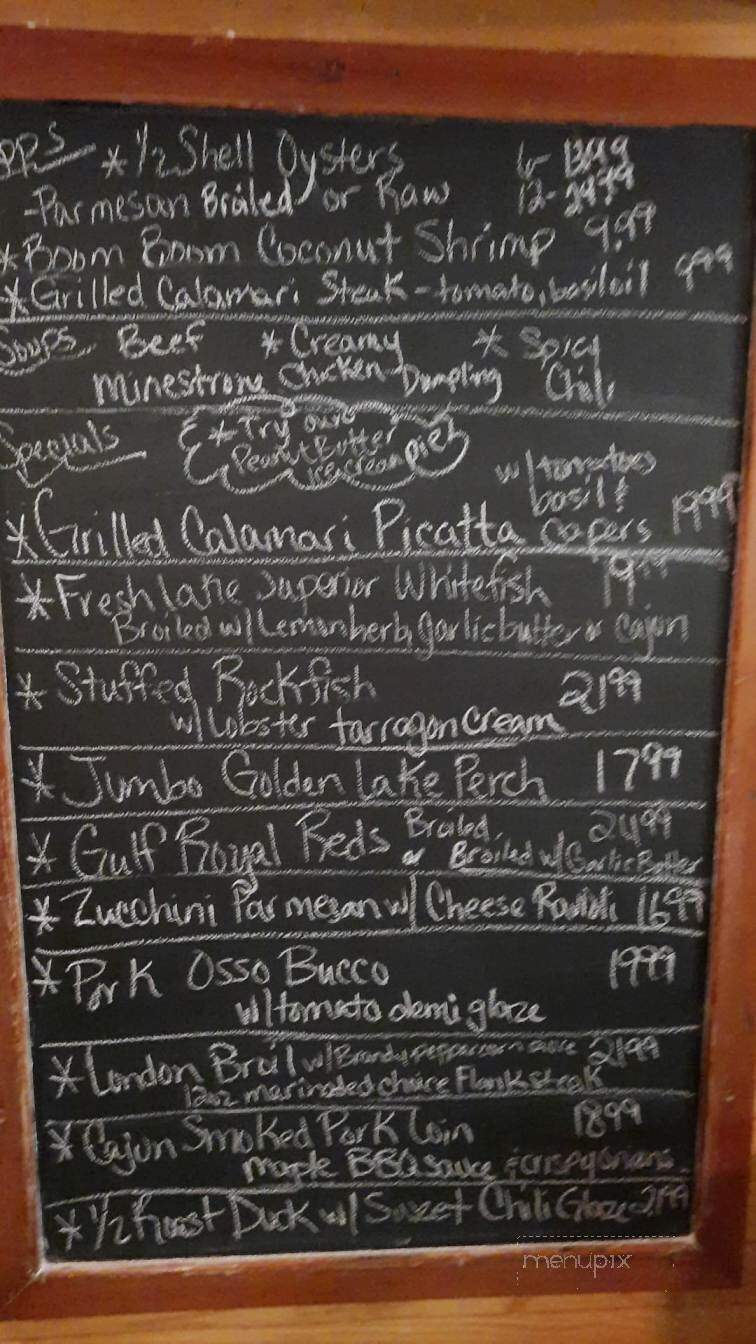 PPS * 1/2 Shell Oysters 6- 13.99
-Parmesan Broiled or Raw 12- 24.99
* Boom Boom Coconut Shrimp 9.99
* Grilled Calamari Steak - tomato, basil oil 999
Soups Beef * Creamy * Spicy
Minestrone Chicken Dumpling Chili
Specials * Try our
Peanut Butter
ice cream pie!
w/tomatoes
basil &
* Grilled Calamari Picatta capers 1999
* Fresh Lake Superior Whitefish 1999
Broiled w/Lemon herb, garlic butter or Cajun
* Stuffed Rockfish 2199
w/Lobster tarragon cream
* Jumbo Golden Lake Perch 1799
* Gulf Royal Reds Broiled 2499
or Broiled w/Garlic Butter
* Zucchini Parmesan w/ Cheese Ravioli 1699
* Pork Osso Bucco 1999
w/tomato demi glaze
* London Broil w/Brandy peppercorn sauce 2199
12oz marinaded choice Flank steak
* Cajun Smoked Pork Loin 1899
maple BBQ sauce & crispy onions
* 1/2 Roast Duck w/ Sweet Chili Glaze 2199
menupix